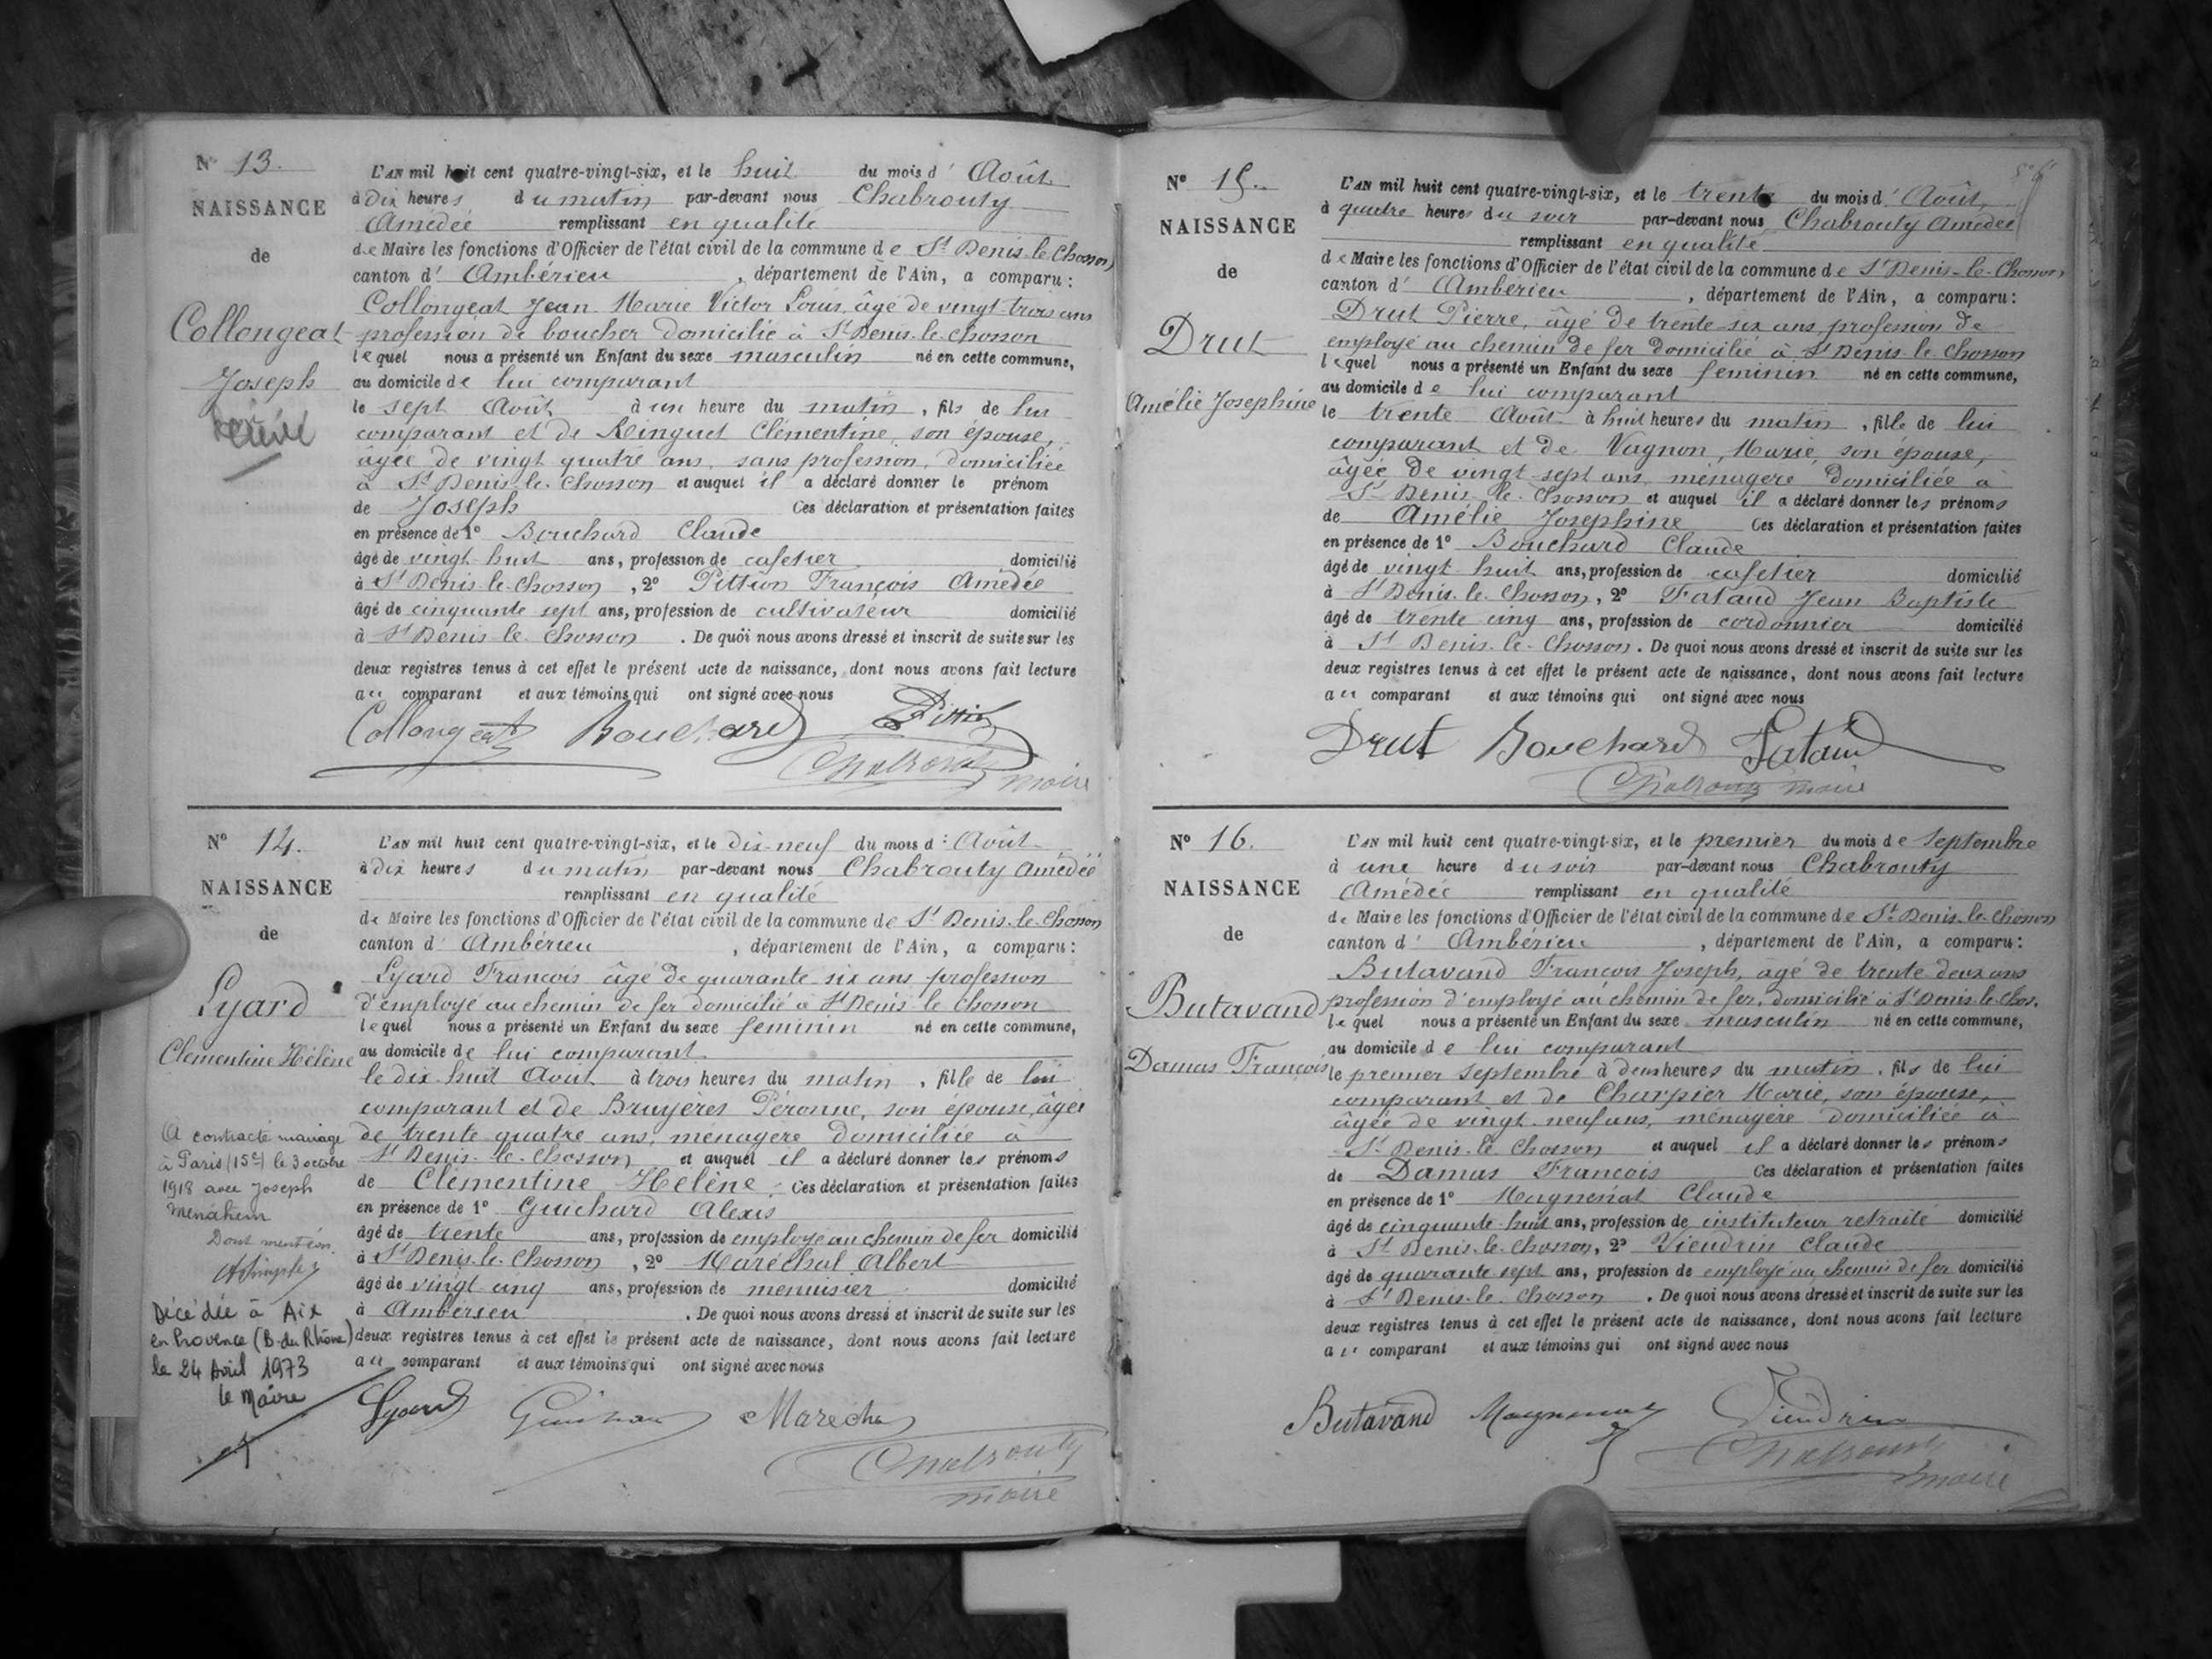 N° 13.
NAISSANCE
de
Collongeat
Joseph
L'AN mil huit cent quatre-vingt-six, et le huit du mois d' Août
à dix heures du matin par-devant nous Chabrouty
Amédée remplissant en qualité
de Maire les fonctions d'Officier de l'état civil de la commune de St Denis-le-Chosson
canton d' Ambérieu, département de l'Ain, a comparu:
Collongeat Jean Marie Victor Louis, âgé de vingt-trois ans
profession de boucher domicilié à St Denis-le-Chosson
lequel nous a présenté un Enfant du sexe masculin né en cette commune,
au domicile de lui comparant
le sept Août à une heure du matin, fils de lui
comparant et de Ringuet Clémentine, son épouse,
âgée de vingt quatre ans, sans profession, domiciliée
à St Denis-le-Chosson et auquel il a déclaré donner le prénom
de Joseph Ces déclaration et présentation faites
en présence de 1° Bouchard Claude
âgé de vingt-huit ans, profession de cafetier domicilié
à St Denis-le-Chosson, 2° Pittion François Amédée
âgé de cinquante sept ans, profession de cultivateur domicilié
à St Denis le Chosson. De quoi nous avons dressé et inscrit de suite sur les
deux registres tenus à cet effet le présent acte de naissance, dont nous avons fait lecture
au comparant et aux témoins qui ont signé avec nous
Collongeat Bouchard Pittion
Chabrouty
maire
N° 14.
NAISSANCE
de
Lyard
Clémentine Hélène
A contracté mariage
à Paris (15e) le 3 octobre
1918 avec Joseph
Menahem
Dont mention.
Décédée à Aix
en Provence (B. du Rhône)
le 24 Avril 1973
le Maire
L'AN mil huit cent quatre-vingt-six, et le dix-neuf du mois d' Août
à dix heures du matin par-devant nous Chabrouty Amédée
remplissant en qualité
de Maire les fonctions d'Officier de l'état civil de la commune de St Denis-le-Chosson
canton d' Ambérieu, département de l'Ain, a comparu:
Lyard François âgé de quarante-six ans profession
d'employé au chemin de fer domicilié à St Denis-le-Chosson
lequel nous a présenté un Enfant du sexe féminin né en cette commune,
au domicile de lui comparant
le dix-huit Août à trois heures du matin, fille de lui
comparant et de Bruyères Péronne, son épouse, âgée
de trente quatre ans, ménagère domiciliée à
St Denis-le-Chosson et auquel il a déclaré donner les prénoms
de Clémentine Hélène. Ces déclaration et présentation faites
en présence de 1° Guichard Alexis
âgé de trente ans, profession de employé au chemin de fer domicilié
à St Denis-le-Chosson, 2° Maréchal Albert
âgé de vingt cinq ans, profession de menuisier domicilié
à Ambérieu. De quoi nous avons dressé et inscrit de suite sur les
deux registres tenus à cet effet le présent acte de naissance, dont nous avons fait lecture
au comparant et aux témoins qui ont signé avec nous
Lyard Guichard Maréchal
Chabrouty
maire
N° 15.
NAISSANCE
de
Drut
Amélie Josephine
L'AN mil huit cent quatre-vingt-six, et le trente du mois d' Août
à quatre heures du soir par-devant nous Chabrouty Amédée
remplissant en qualité
de Maire les fonctions d'Officier de l'état civil de la commune de St Denis-le-Chosson
canton d' Ambérieu, département de l'Ain, a comparu:
Drut Pierre, âgé de trente-six ans profession de
employé au chemin de fer domicilié à St Denis-le-Chosson
lequel nous a présenté un Enfant du sexe féminin né en cette commune,
au domicile de lui comparant
le trente Août à huit heures du matin, fille de lui
comparant et de Vagnon, Marie, son épouse,
âgée de vingt-sept ans, ménagère domiciliée à
St Denis-le-Chosson et auquel il a déclaré donner les prénoms
de Amélie Josephine Ces déclaration et présentation faites
en présence de 1° Bouchard Claude
âgé de vingt huit ans, profession de cafetier domicilié
à St Denis-le-Chosson, 2° Fataud Jean Baptiste
âgé de trente cinq ans, profession de cordonnier domicilié
à St Denis-le-Chosson. De quoi nous avons dressé et inscrit de suite sur les
deux registres tenus à cet effet le présent acte de naissance, dont nous avons fait lecture
au comparant et aux témoins qui ont signé avec nous
Drut Bouchard Fataud
Chabrouty maire
N° 16.
NAISSANCE
de
Butavand
Damas François
L'AN mil huit cent quatre-vingt-six, et le premier du mois de Septembre
à une heure du soir par-devant nous Chabrouty
Amédée remplissant en qualité
de Maire les fonctions d'Officier de l'état civil de la commune de St Denis-le-Chosson
canton d' Ambérieu, département de l'Ain, a comparu:
Butavand François Joseph, âgé de trente deux ans
profession d'employé au chemin de fer, domicilié à St Denis-le-Chos.
lequel nous a présenté un Enfant du sexe masculin né en cette commune,
au domicile de lui comparant
le premier Septembre à deux heures du matin, fils de lui
comparant et de Charpier Marie, son épouse,
âgée de vingt-neuf ans, ménagère domiciliée à
St Denis-le-Chosson et auquel il a déclaré donner les prénoms
de Damas François Ces déclaration et présentation faites
en présence de 1° Magnenat Claude
âgé de cinquante-huit ans, profession de instituteur retraité domicilié
à St Denis-le-Chosson, 2° Vieudrin Claude
âgé de quarante-sept ans, profession de employé au chemin de fer domicilié
à St Denis-le-Chosson. De quoi nous avons dressé et inscrit de suite sur les
deux registres tenus à cet effet le présent acte de naissance, dont nous avons fait lecture
au comparant et aux témoins qui ont signé avec nous
Butavand Magnenat Vieudrin
Chabrouty
maire